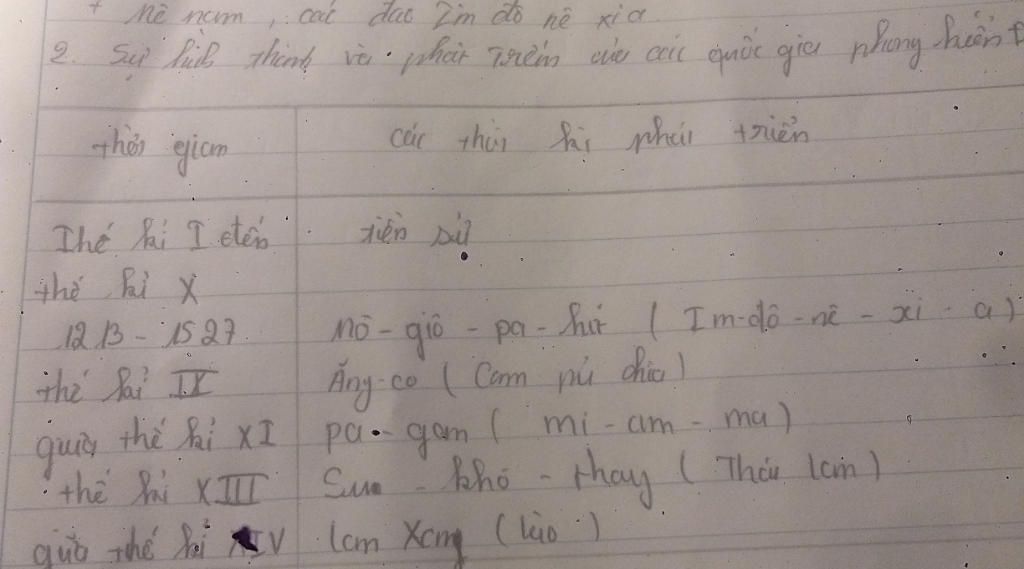 + Mê nam, các đảo Im đô nê xi a
2. Sự hình thành và phát triển của các quốc gia phong kiến
thời gian
các thời kì phát triển
Thế kỉ I đến
tiền sử
thế kỉ X
1213 - 1527
Mô - giô - pa - hít (Im-đô-nê-xi-a)
thế kỉ IX
Ăng-co (Cam pu chia)
giữa thế kỉ XI
pa-gan (mi-am-ma)
thế kỉ XIII
Su - khô - thay (Thái lan)
giữa thế kỉ XIV
lan Xang (lào)